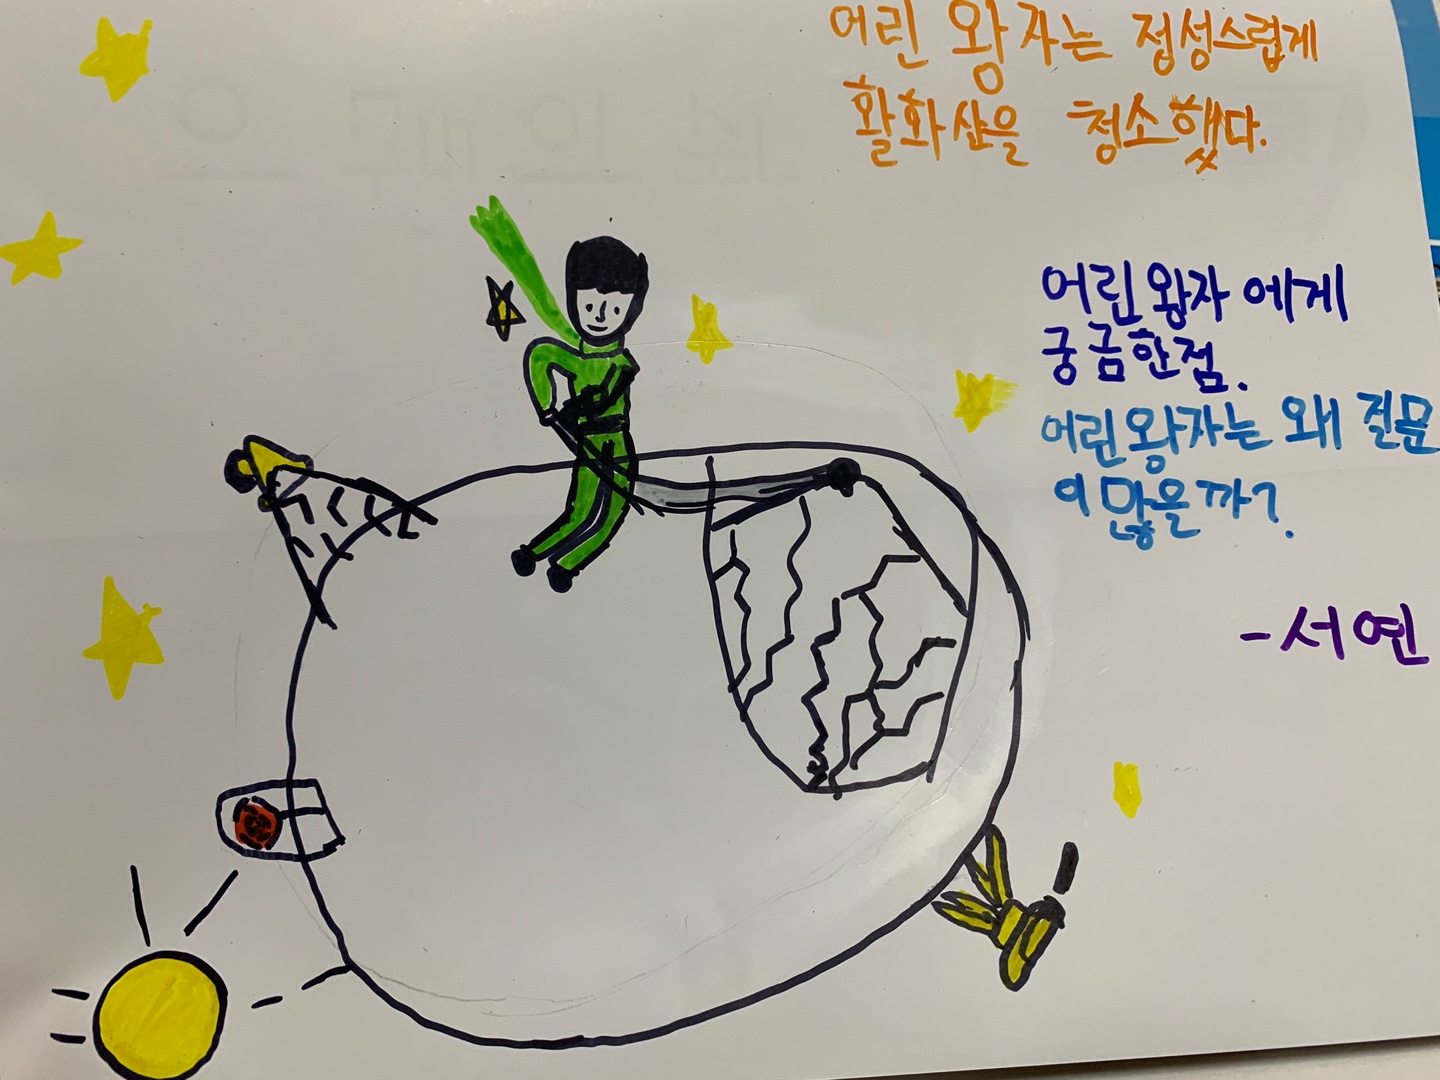 어린 왕자는 정성스럽게
활화산을 청소했다.
어린왕자에게
궁금한점.
어린왕자는 왜 질문
이많을까?
-서연